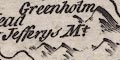 Greenholm
ead
Jefferys Mt